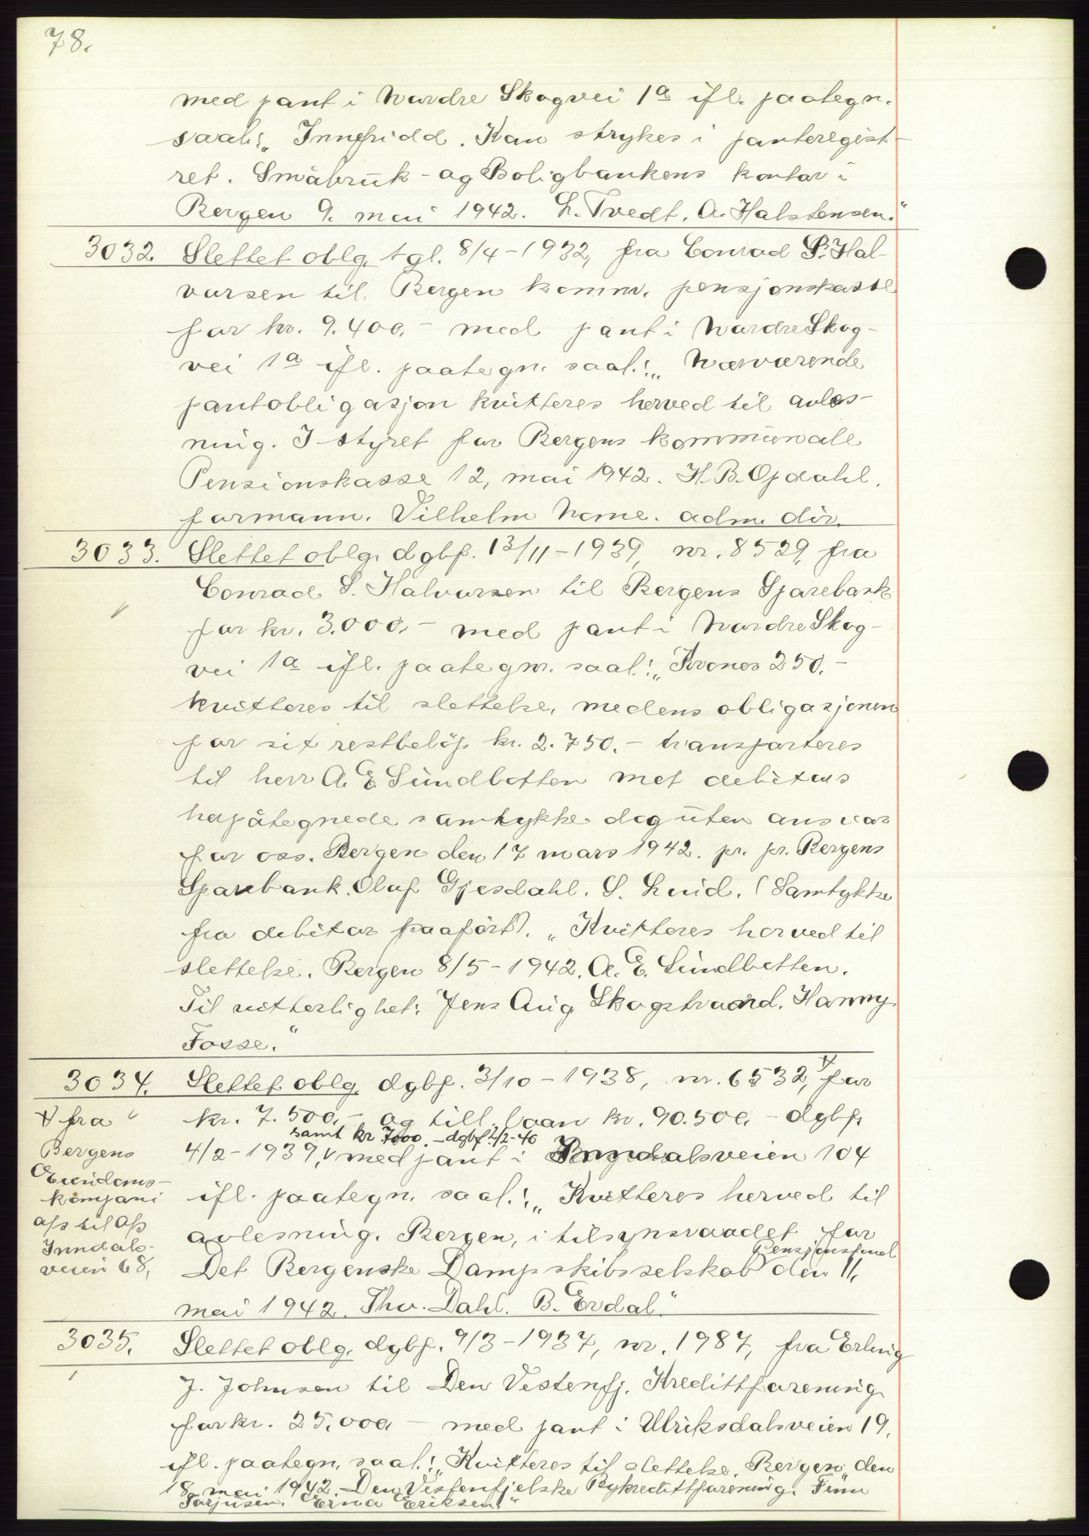 78.
med pant i Nordre Skogvei 1a ifl. paategn.
saal: „Innfridd. Kan strykes i panteregist-
ret. Småbruk- og Boligbankens kontor i
Bergen 9. mai 1942. L. Tvedt. A. Halstensen."
3032. Slettet oblg. tgl. 8/4-1932, fra Conrad S. Hal-
vorsen til Bergen komm. pensjonskasse
for kr. 9.400,- med pant i Nordre Skog-
vei 1a ifl. paategn. saal.: „Nærværende
pantobligasjon kvitteres herved til avløs-
ning. I styret for Bergens kommunale
Pensionskasse 12, mai 1942. H.B. Opdahl.
formann. Vilhelm Norne. adm. dir.
3033. Slettet oblg. dgbf. 13/11-1939, nr. 8529, fra
Conrad S. Halvorsen til Bergens Sparebank
for kr. 3.000,- med pant i Nordre Skog-
vei 1a ifl. paategn. saal.: „Kroner 250.-
kvitteres til slettelse, medens obligasjonen
for sit restbeløp kr. 2.750.- transporteres
til herr A. E. Sundbotten mot debitors
hospåtegnede samtykke dog uten ansvar
for oss. Bergen den 17 mars 1942. pr. pr. Bergens
Sparebank. Olaf Gjesdahl. S. Lund. (Samtykke
fra debitor paaført). „Kvitteres herved til
slettelse. Bergen 8/5-1942. A. E. Sundbotten.
Til vitterlighet: Jens Aug Skogstrand. Hanny
Fosse."
3034. Slettet oblg. dgbf. 3/10-1938, nr. 6532, √ for
√ fra kr. 7.500,- og till. laan kr. 90.500,- dgbf.
samt kr 7000.- dgbf 2/2-40
Bergens 4/2-1939, √ med pant i Inndalsveien 104
Eiendoms-
kompani ifl. paategn. saal.: „Kvitteres herved til
a/s til A/s
Inndals- avløsning. Bergen, i tilsynsraadet for
Pensjonsfond
veien 68, Det Bergenske Dampskibsselskab √ den 11,
mai 1942. Thv. Dahl. B. Evdal."
3035. Slettet oblg. dgbf. 9/3-1937, nr. 1987, fra Erling
J. Johnsen til Den Vestenfj. Kredittforening
for kr. 25.000 - med pant i Ulriksdalsveien 19,
ifl. paategn. saal.: „Kvitteres til slettelse. Bergen den
18 mai 1942. Den Vestenfjelske Bykredittforening. Finn
Torjusen. Erna Eriksen."